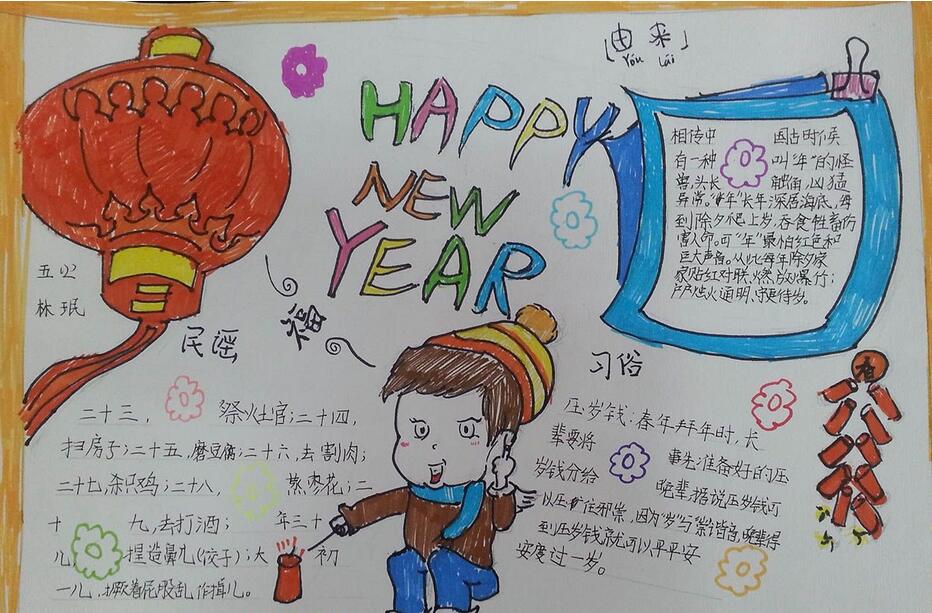 「由来」
Yóu lái
HAPPY
NEW
YEAR
相传中 国古时候
有一种 叫"年"的怪
兽,头长 触角,凶猛
异常。"年"长年深居海底,每
到除夕爬上岁,吞食牲畜伤
害人命。可"年"最怕红色和
巨大声音。从此每年除夕家
家贴红对联、燃放爆竹;
户户烛火通明、守更待岁。
五
林珉
福
民谣
二十三, 祭灶官;二十四,
扫房子;二十五,磨豆腐;二十六,去割肉;
二十七,杀只鸡;二十八, 蒸枣花;二
十 九,去打酒; 年三十
儿 捏造鼻儿(饺子);大 初
一儿,撅着屁股乱作揖儿。
习俗
压岁钱:春年拜年时,长
辈要将 事先准备好的压
岁钱分给 晚辈,据说压岁钱可
以压住邪祟,因为"岁"与"祟"谐音,晚辈得
到压岁钱就可以平平安
安度过一岁。
春